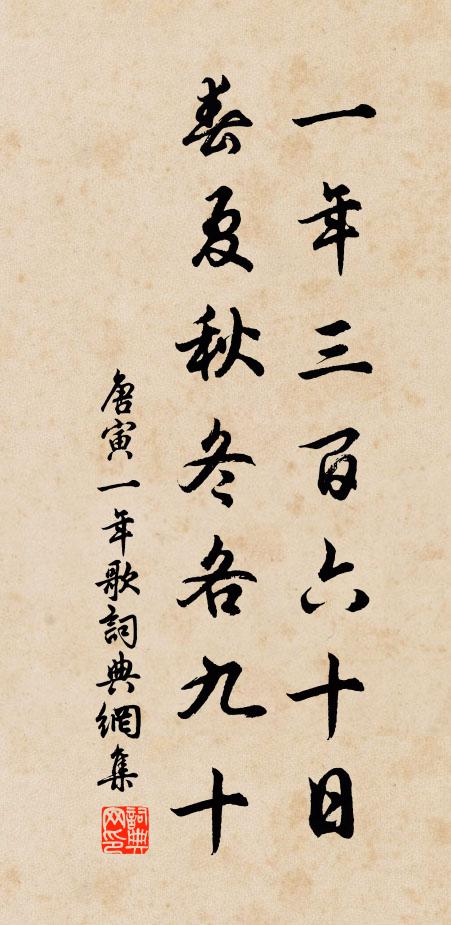 一年三百六十日
春夏秋冬各九十
唐寅一年歌詞典網集
詞典网印